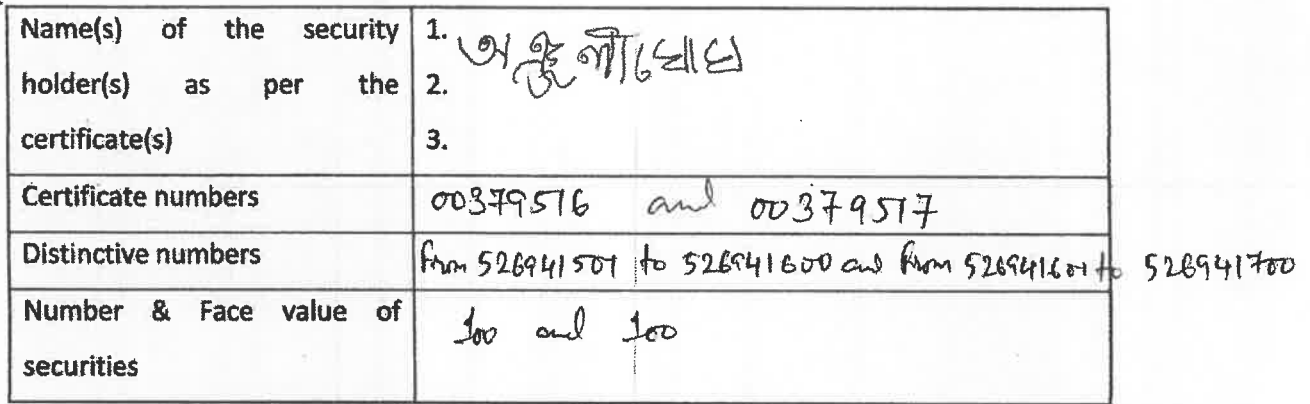 Name(s) of the security
holder(s) as per the
certificate(s)
1. অঞ্জলী ঘোষ
2.
3.
Certificate numbers
00379516 and 00379517
Distinctive numbers
from 526941501 to 526941600 and from 526941601 to 526941700
Number & Face value of
securities
100 and 100